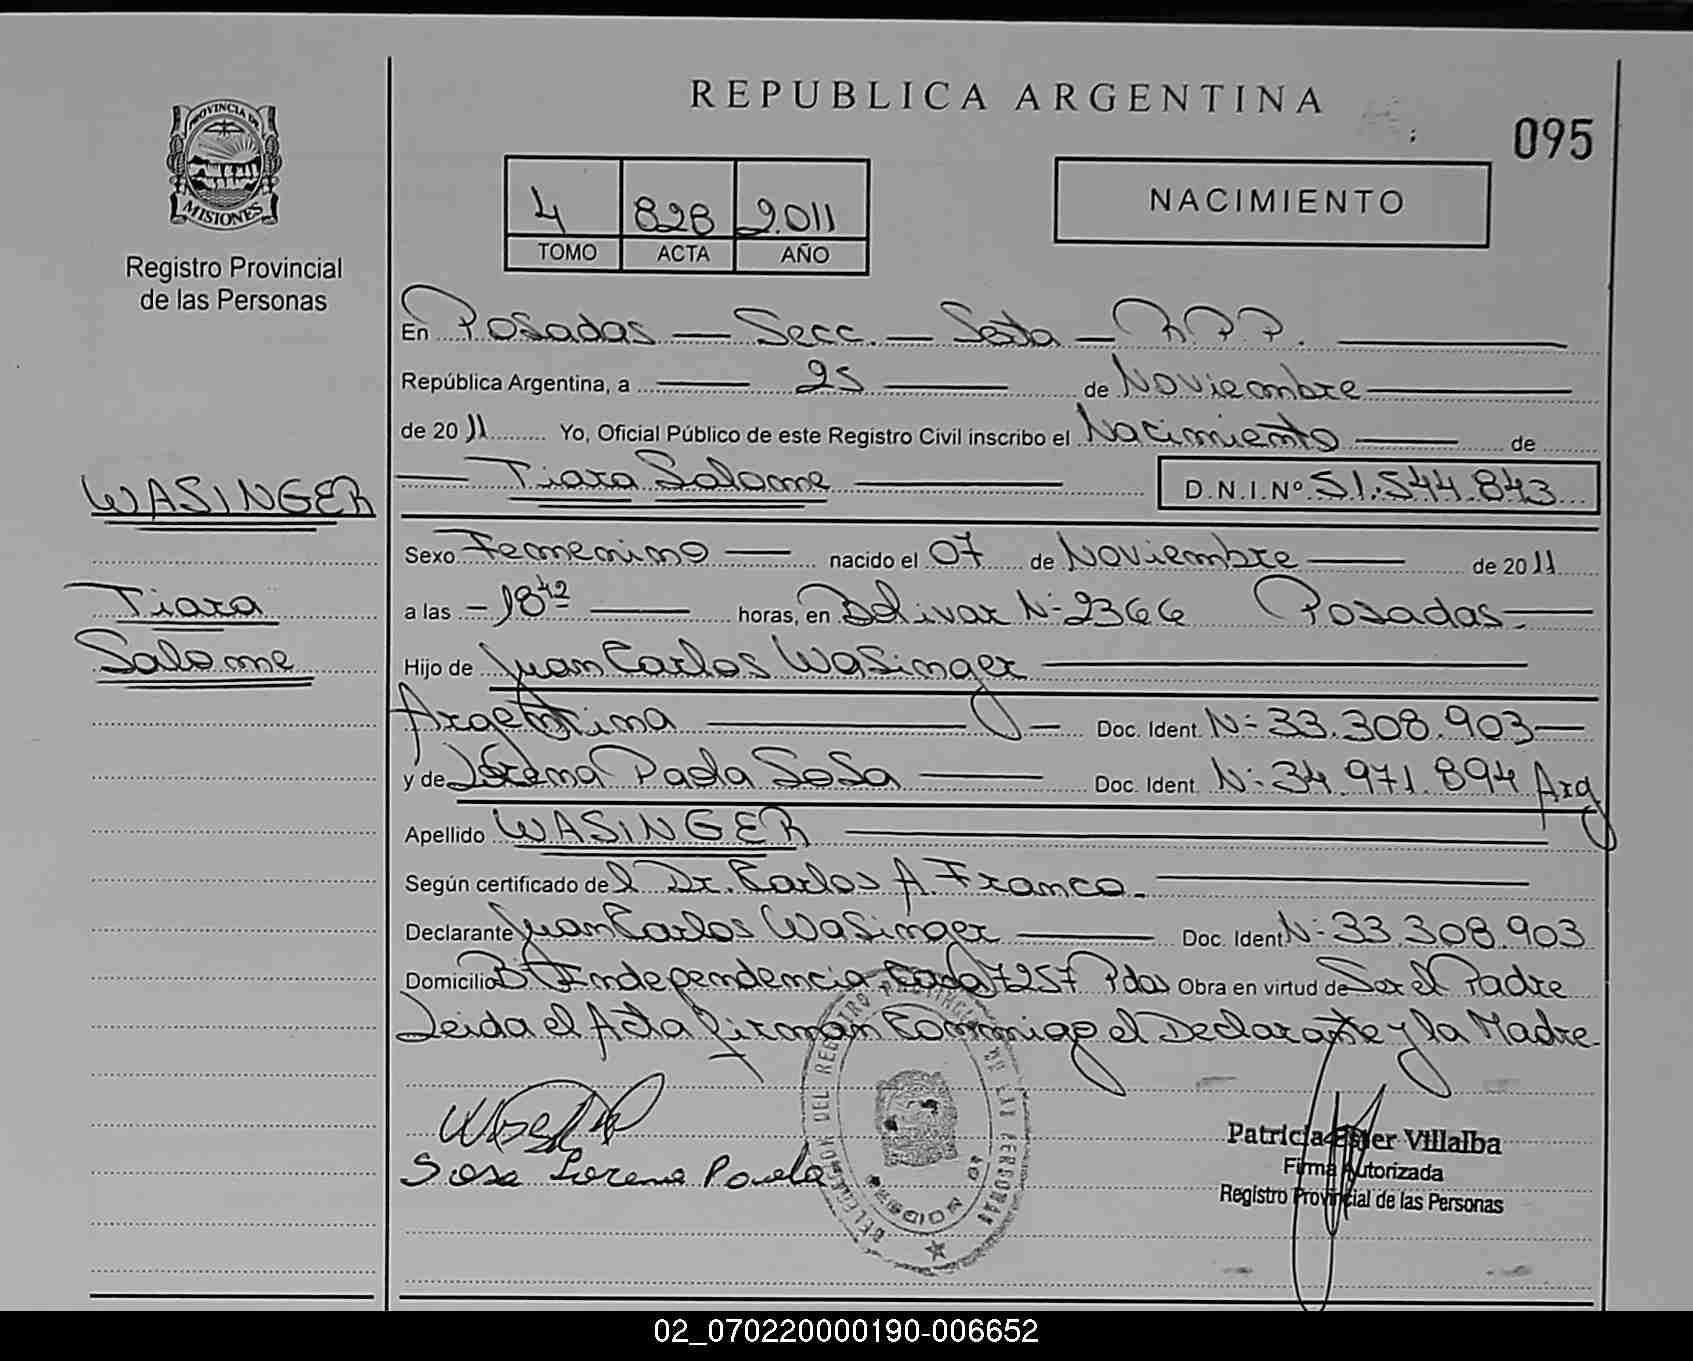 REPUBLICA ARGENTINA
095
PROVINCIA DE
MISIONES
Registro Provincial
de las Personas
4 828 2.011
TOMO ACTA AÑO
NACIMIENTO
En Posadas — Secc. — Sexta — R.P.P.
República Argentina, a 25 de Noviembre
de 2011 Yo, Oficial Público de este Registro Civil inscribo el Nacimiento de
Tiara Salome D.N.I.Nº 51.544.843
WASINGER
Sexo Femenino nacido el 07 de Noviembre de 2011
Tiara
a las 18 42 horas, en Bolivar Nº 2366 Posadas
Salome
Hijo de Juan Carlos Wasinger
Argentina Doc. Ident. Nº 33.308.903
y de Lorena Paola Sosa Doc. Ident. Nº 34.971.894 Arg
Apellido WASINGER
Según certificado del Dr. Carlos A. Franco
Declarante Juan Carlos Wasinger Doc. Ident Nº 33.308.903
Domicilio Bº Independencia 7257 Pdas Obra en virtud de Ser el Padre
Leida el Acta firman Conmigo el Declarante y la Madre
Sosa Lorena Paola
Patricia Ester Villalba
Firma Autorizada
Registro Provincial de las Personas
02_070220000190-006652